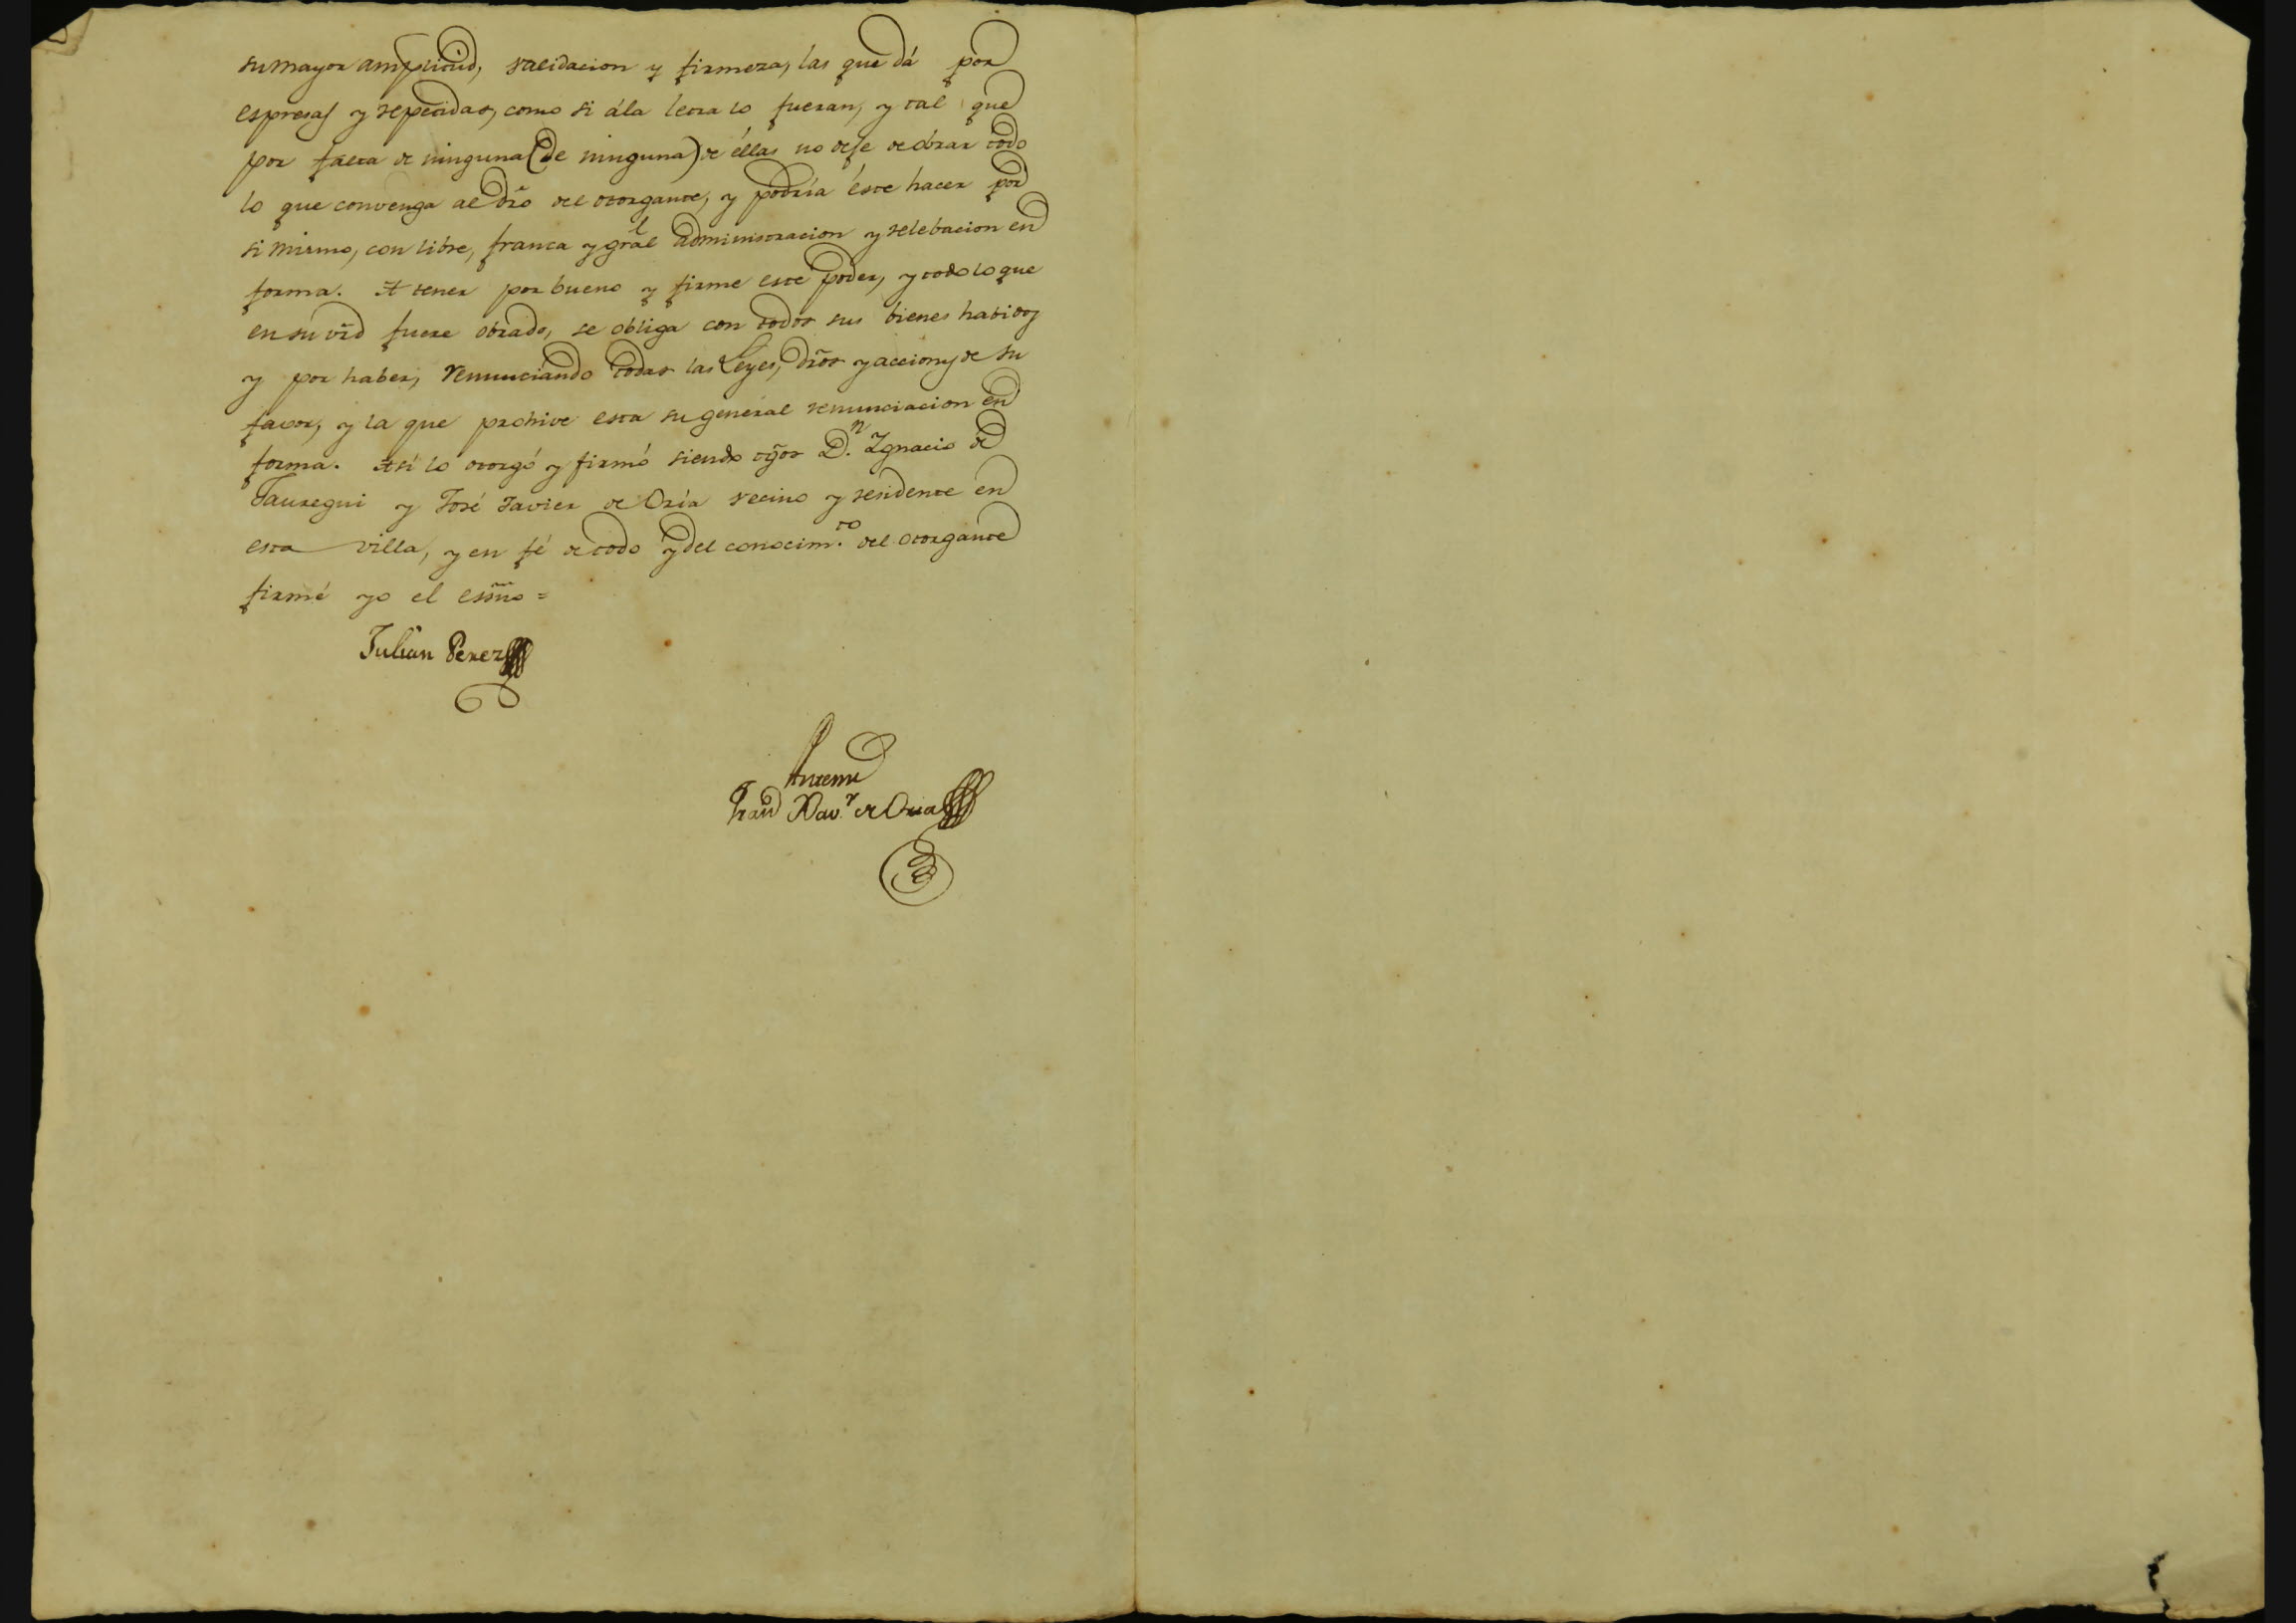 su mayor amplitud, validacion y firmeza, las que dá por
espresas y repetidas, como si á la letra lo fueran, y tal que
por falta de ninguna (de ninguna) de éllas no deje de obrar todo
lo que convenga al dr̃o del otorgante, y podría éste hacer por
si mismo, con libre, franca y gral administracion y relebacion en
forma. A tener por bueno y firme este poder, y todo lo que
en su vr̃d fuere obrado, se obliga con todos sus bienes habidos
y por haber, renunciando todas las Leyes, dr̃os y acciones de su
favor, y la que prohive esta su general renunciacion en
forma. Así lo otorgó y firmó siendo tg̃os D.n Ignacio de
Jauregui y José Javier de Oria vecino y residente en
esta villa, y en fé de todo y del conocim.to del otorgante
firmé yo el essño =
Julian Perez
Antemi
Fran Xav.r de Oria